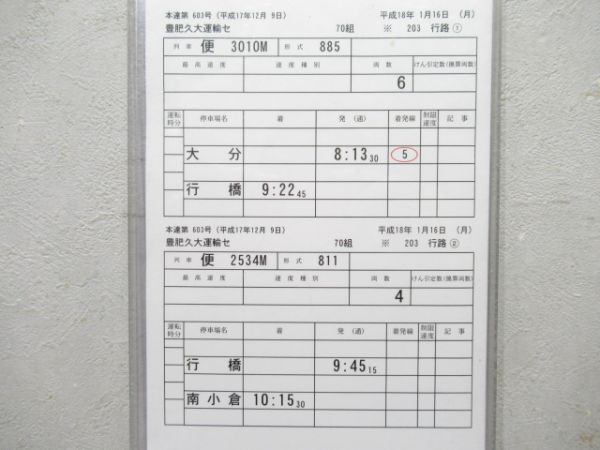 本達第 603号(平成17年12月 9日) 平成18年 1月16日 (月)
豊肥久大運輸セ 70組 ※ 203 行路①
列車 便 3010M 形式 885
最高速度 速度種別 両数 けん引定数(換算両数)
6
運転時分 停車場名 着 発(通) 着発線 制限速度 記事
大分 8:13 30 5
行橋 9:22 45
本達第 603号(平成17年12月 9日) 平成18年 1月16日 (月)
豊肥久大運輸セ 70組 ※ 203 行路②
列車 便 2534M 形式 811
最高速度 速度種別 両数 けん引定数(換算両数)
4
運転時分 停車場名 着 発(通) 着発線 制限速度 記事
行橋 9:45 15
南小倉 10:15 30